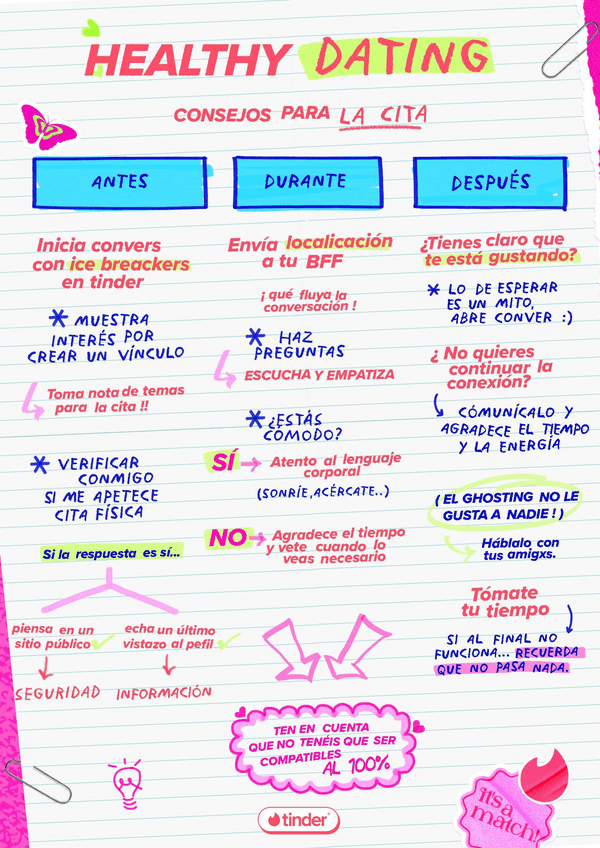 HEALTHY DATING
CONSEJOS PARA LA CITA
ANTES
Inicia convers
con ice breackers
en tinder
* MUESTRA
INTERÉS POR
CREAR UN VÍNCULO
Toma nota de temas
para la cita !!
* VERIFICAR
CONMIGO
SI ME APETECE
CITA FÍSICA
Si la respuesta es sí...
piensa en un
sitio público
SEGURIDAD
echa un último
vistazo al pefil
INFORMACIÓN
DURANTE
Envía localicación
a tu BFF
¡ qué fluya la
conversación !
* HAZ
PREGUNTAS
ESCUCHA Y EMPATIZA
* ¿ESTÁS
CÓMODO?
SÍ
Atento al lenguaje
corporal
(SONRÍE, ACÉRCATE..)
NO
Agradece el tiempo
y vete cuando lo
veas necesario
TEN EN CUENTA
QUE NO TENÉIS QUE SER
COMPATIBLES
AL 100%
tinder
DESPUÉS
¿Tienes claro que
te está gustando?
* LO DE ESPERAR
ES UN MITO,
ABRE CONVER :)
¿ No quieres
continuar la
conexión?
CÓMUNÍCALO Y
AGRADECE EL TIEMPO
Y LA ENERGÍA
( EL GHOSTING NO LE
GUSTA A NADIE ! )
Háblalo con
tus amigxs.
Tómate
tu tiempo
SI AL FINAL NO
FUNCIONA... RECUERDA
QUE NO PASA NADA.
It's a
match!